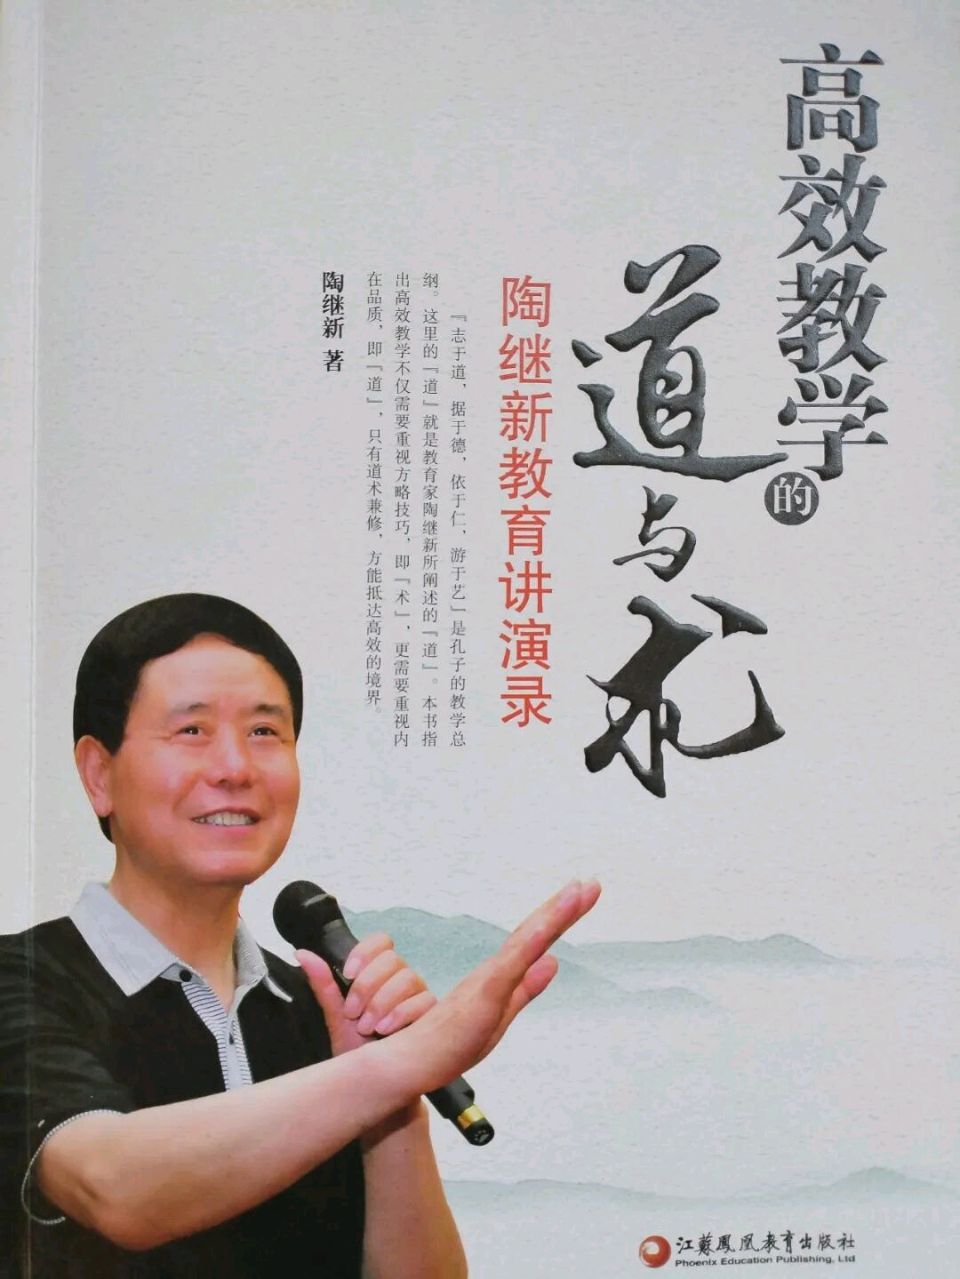 高效教学的
道与术
陶继新教育讲演录
『志于道，据于德，依于仁，游于艺』是孔子的教学总
纲。这里的『道』就是教育家陶继新所阐述的『道』。本书指
出高效教学不仅需要重视方略技巧，即『术』，更需要重视内
在品质，即『道』，只有道术兼修，方能抵达高效的境界。
陶继新 著
江苏凤凰教育出版社
Phoenix Education Publishing, Ltd